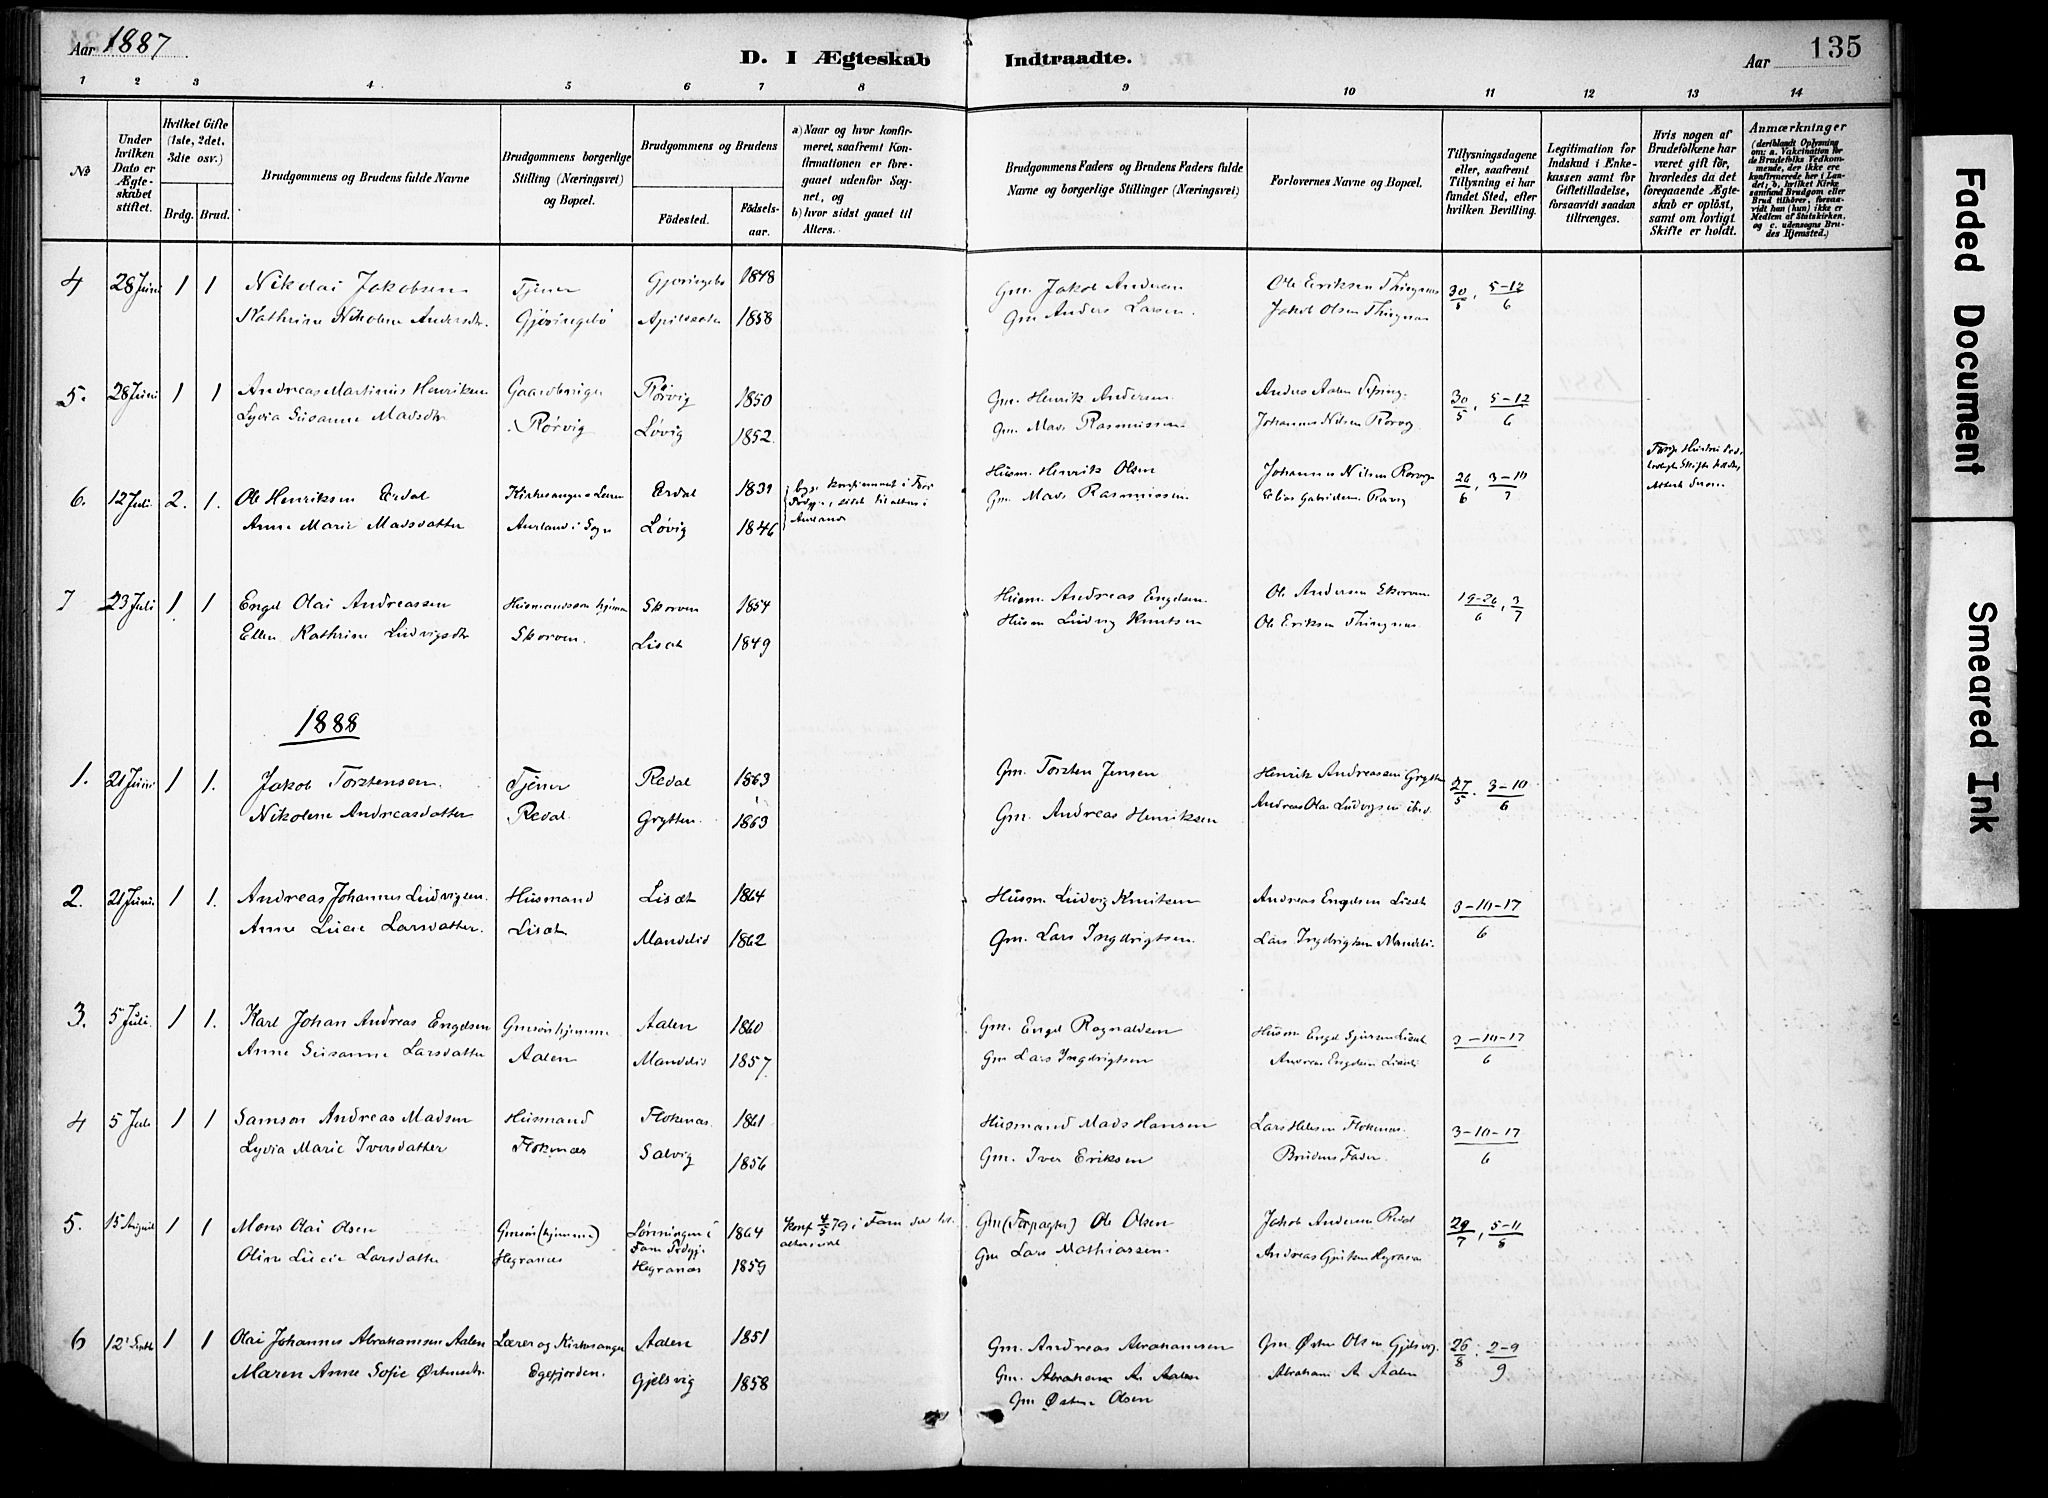 Aar 1887
D. I Ægteskab Indtraadte.
Aar
135
1 2 3 4 5 6 7 8 9 10 11 12 13 14
№
Under hvilken Dato er Ægteskabet stiftet.
Hvilket Gifte (1ste, 2det, 3die osv.)
Brdg. Brud.
Brudgommens og Brudens fulde Navne
Brudgommens borgerlige Stilling (Næringsvei) og Bopæl.
Brudgommens og Brudens
Fødested. Fødselsaar.
a) Naar og hvor konfirmeret, saafremt Konfirmationen er foregaaet udenfor Sognet, og
b) hvor sidst gaaet til Alters.
Brudgommens Faders og Brudens Faders fulde Navne og borgerlige Stillinger (Næringsvei)
Forlovernes Navne og Bopæl.
Tillysningsdagene eller, saafremt Tillysning ei har fundet Sted, efter hvilken Bevilling.
Legitimation for Indskud i Enkekassen samt for Giftetilladelse, forsaavidt saadan tiltrænges.
Hvis nogen af Brudefolkene har været gift før, hvorledes da det foregaaende Ægteskab er opløst, samt om lovligt Skifte er holdt.
Anmærkninger (deriblandt Oplysning om: a. Vakcination for de Brudefolks Vedkommende, der ikke ere konfirmerede her i Landet; b. hvilket Kirkesamfund Brudgom eller Brud tilhører, forsaavidt han (hun) ikke er Medlem af Statskirken, og c. udensogns Brudes Hjemsted.)
4 28 Juni 1 1 Nikolai Jakobsen Tjener Gjøringebø 1848 Gm. Jakob Andersen Ole Eriksen Thingnes 30/5, 5-12/6
Kathrine Nikoline Andersdtr. Gjøringebø 1858 Gm Anders Larsen. Jakob Olsen Thingnes
5. 28 Juni 1 1 Andreas Martinus Henriksen Gaardbruger Rørvig 1850 Gm. Henrik Andersen Anders Aalen 30/5, 5-12/6
Lydia Susanne Madsdtr Rørvig Løvig 1852. Gm. Mads Rasmussen Johannes Nilsen Rørvig
6. 12 Juli 2. 1. Ole Henriksen Ærdal Kirkesanger & Lærer Ærdal 1839 Husm. Henrik Olsen Johannes Nilsen Rørvig 26/6, 3-10/7
Anne Marie Madsdatter Aurland i Sogn Løvig 1846 Gm. Mads Rasmussen Elias Gabrielsen Rørvig
7 23 Juli 1 1 Engel Olai Andreassen Husmandssøn hjemme Skorven 1854 Husm. Andreas Engelsen Ole Andersen Skorven 19-26/6, 3/7
Ellen Kathrine Ludvigsdtr Skorven. Lisæt 1849 Husm Ludvig Knutsen Ole Eriksen Thingnes
1888
1. 21 Juni 1 1. Jakob Torstensen. Tjener Redal 1863 Gm. Torsten Jensen Henrik Andreassen Grytten 27/5. 3-10/6
Nikoline Andreasdatter Redal Grytten. 1863 Gm. Andreas Henriksen Andreas Olai Ludvigsen ibid.
2. 21 Juni 1 1. Andreas Johannes Ludvigsen. Husmand Lisæt 1864 Husm. Ludvig Knutsen Andreas Engelsen Lisæt 3-10-17/6
Anne Lucie Larsdatter. Lisæt Mandelid 1862 Gm. Lars Ingdrigtsen. Lars Ingdrigtsen Mandeli.
3. 5 Juli. 1 1. Karl Johan Andreas Engelsen Gmsøn hjemme Aalen 1860 Gm. Engel Ragnaldsen Husm Engel Sjursen Lisæt 3-10-17/6
Anne Susanne Larsdatter Aalen Mandelid 1857. Gm Lars Ingdrigtsen Andreas Engelsen Lisæt
4 5 Juli 1 1 Samson Andreas Madsen Husmand Flokenæs. 1861 Husmand Mads Hansen Lars Flokenæs. 3-10-17/6
Lydia Marie Iversdatter Flokenæs Solvig 1856 Gm. Iver Eriksen Brudens Fader.
5. 15 August 1 1 Mons Olai Olsen Gmsøn (hjemme) Lønningen i 1864 Konf 4/5 79 i Gm (Forpagter) Ole Olsen Jakob Andersen Redal 29/7, 5-11/8
Oline Lucie Larsdatter Hegranæs Hegranæs 1859 Gm Lars Mathiassen. Andreas Hegranæs
6 12 Septb 1 1 Olai Johannes Abrahamsen Aalen Lærer og Kirkesanger Aalen 1851 Gm. Andreas Abrahamsen Gm. Østen Olsen Gjelsvig. 26/8. 2-9/9
Maren Anne Sofie Østensdtr. Egefjorden. Gjelsvig 1858 Gm. Abraham A. Aalen Abraham A. Aalen
Gm Østen Olsen
Faded Document
Smeared Ink